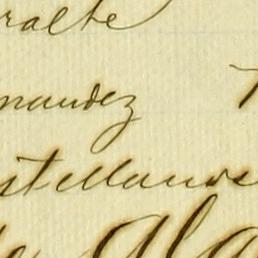 ralte
nandez
stellanos
Ala